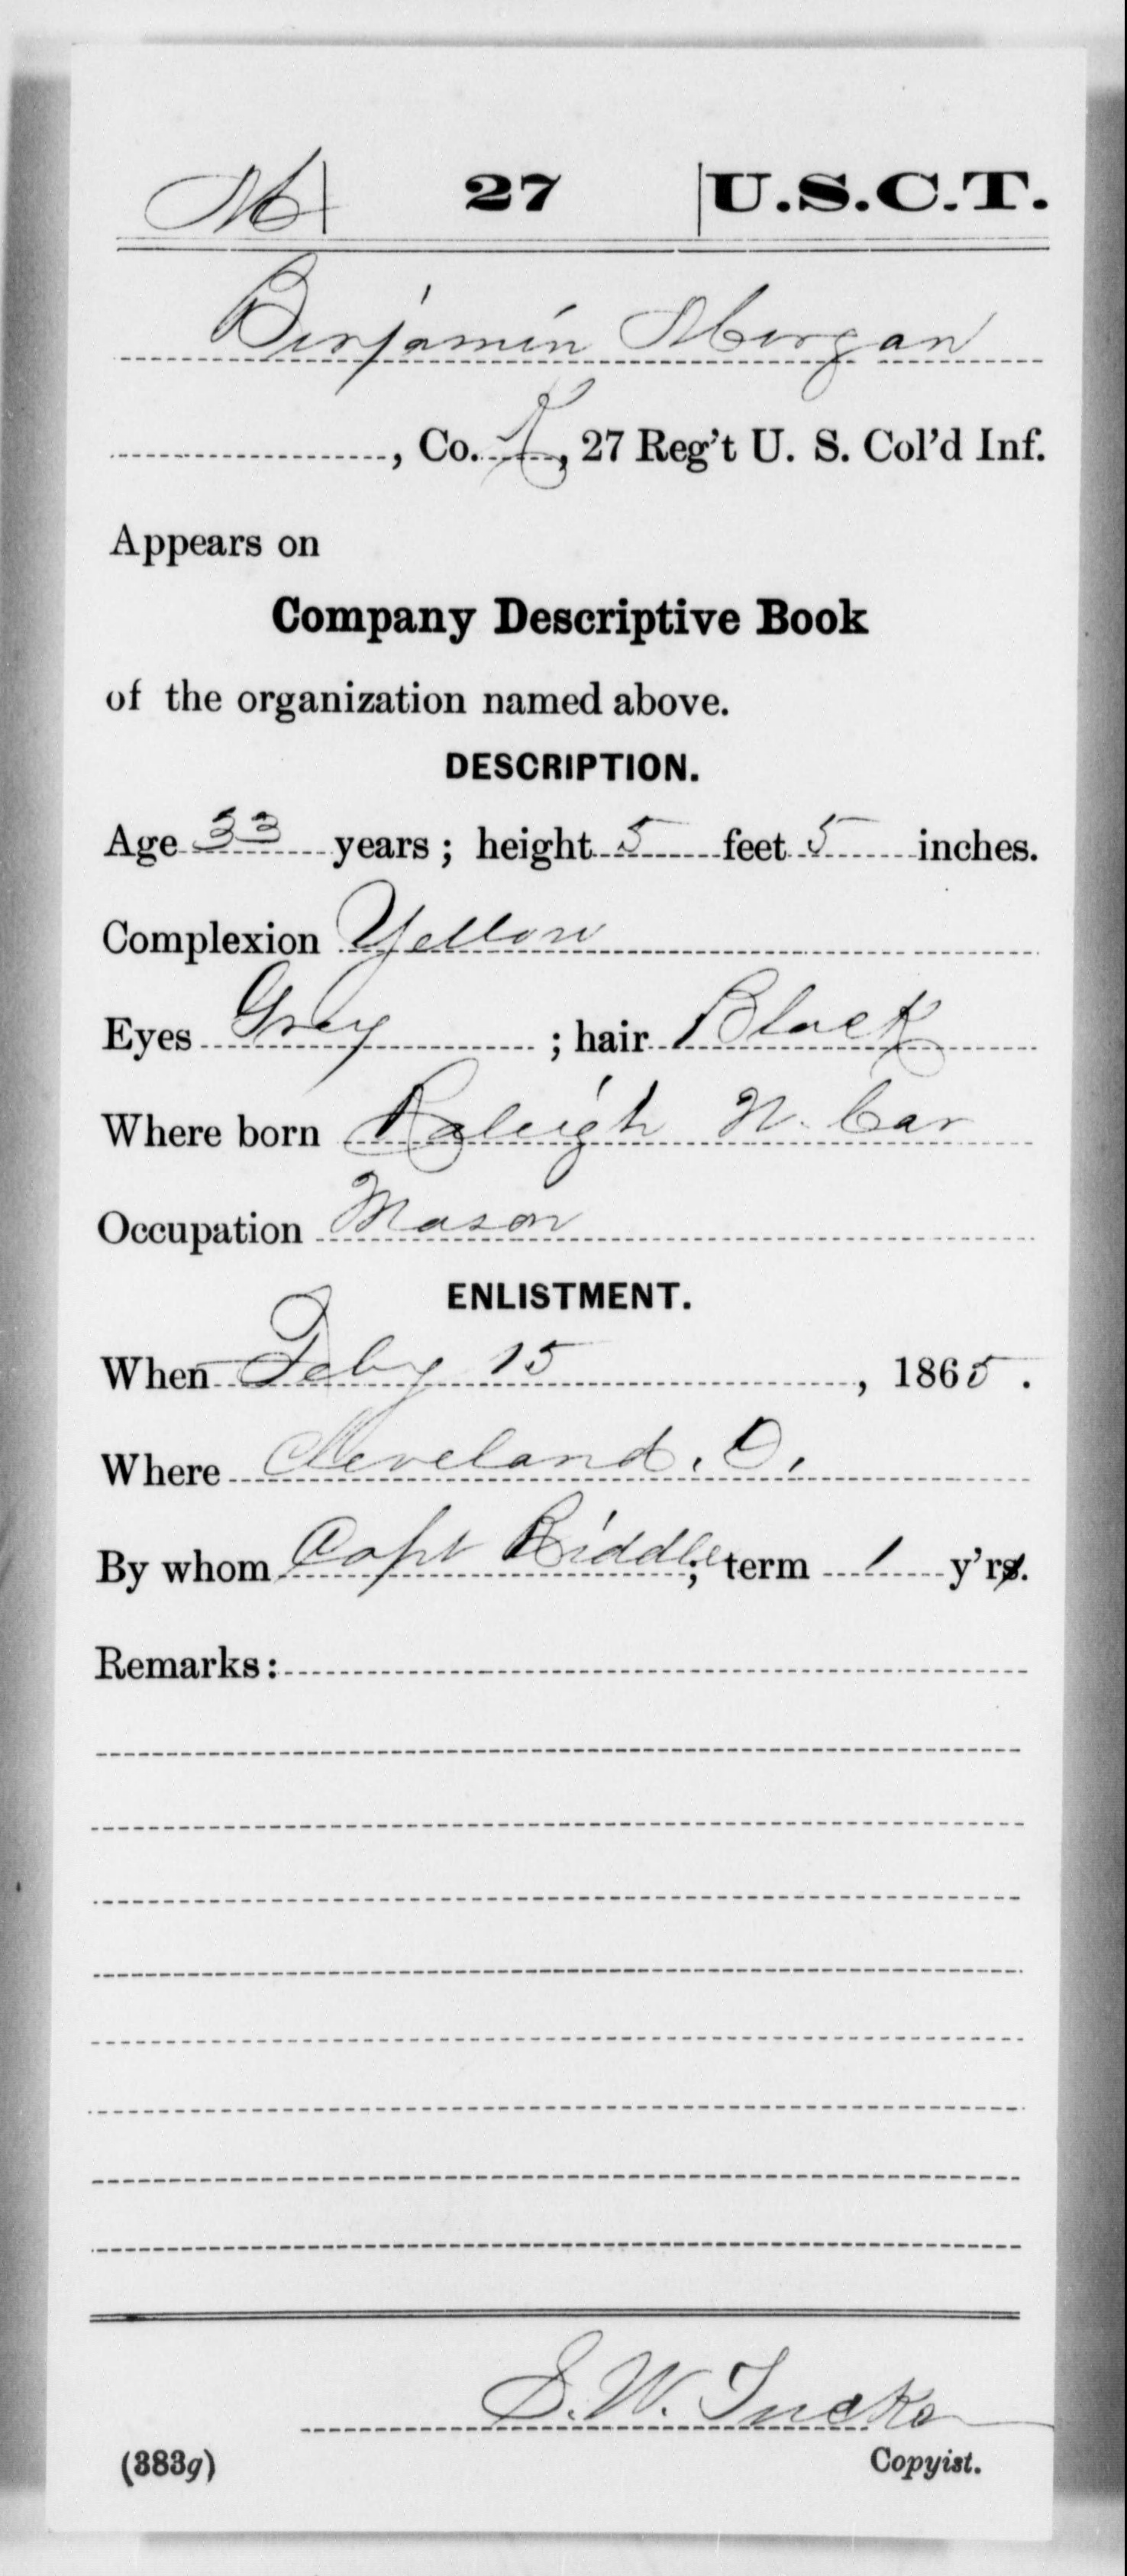 M 27 U.S.C.T.
Benjamin Morgan
, Co. K, 27 Reg't U. S. Col'd Inf.
Appears on
Company Descriptive Book
of the organization named above.
DESCRIPTION.
Age 33 years; height 5 feet 5 inches.
Complexion Yellow
Eyes Grey ; hair Black
Where born Raleigh N. Car
Occupation Mason
ENLISTMENT.
When Feby 15, 1865.
Where Cleveland. O.
By whom Capt Riddle; term 1 y'rs.
Remarks:
S. W. Tucker
(383g) Copyist.